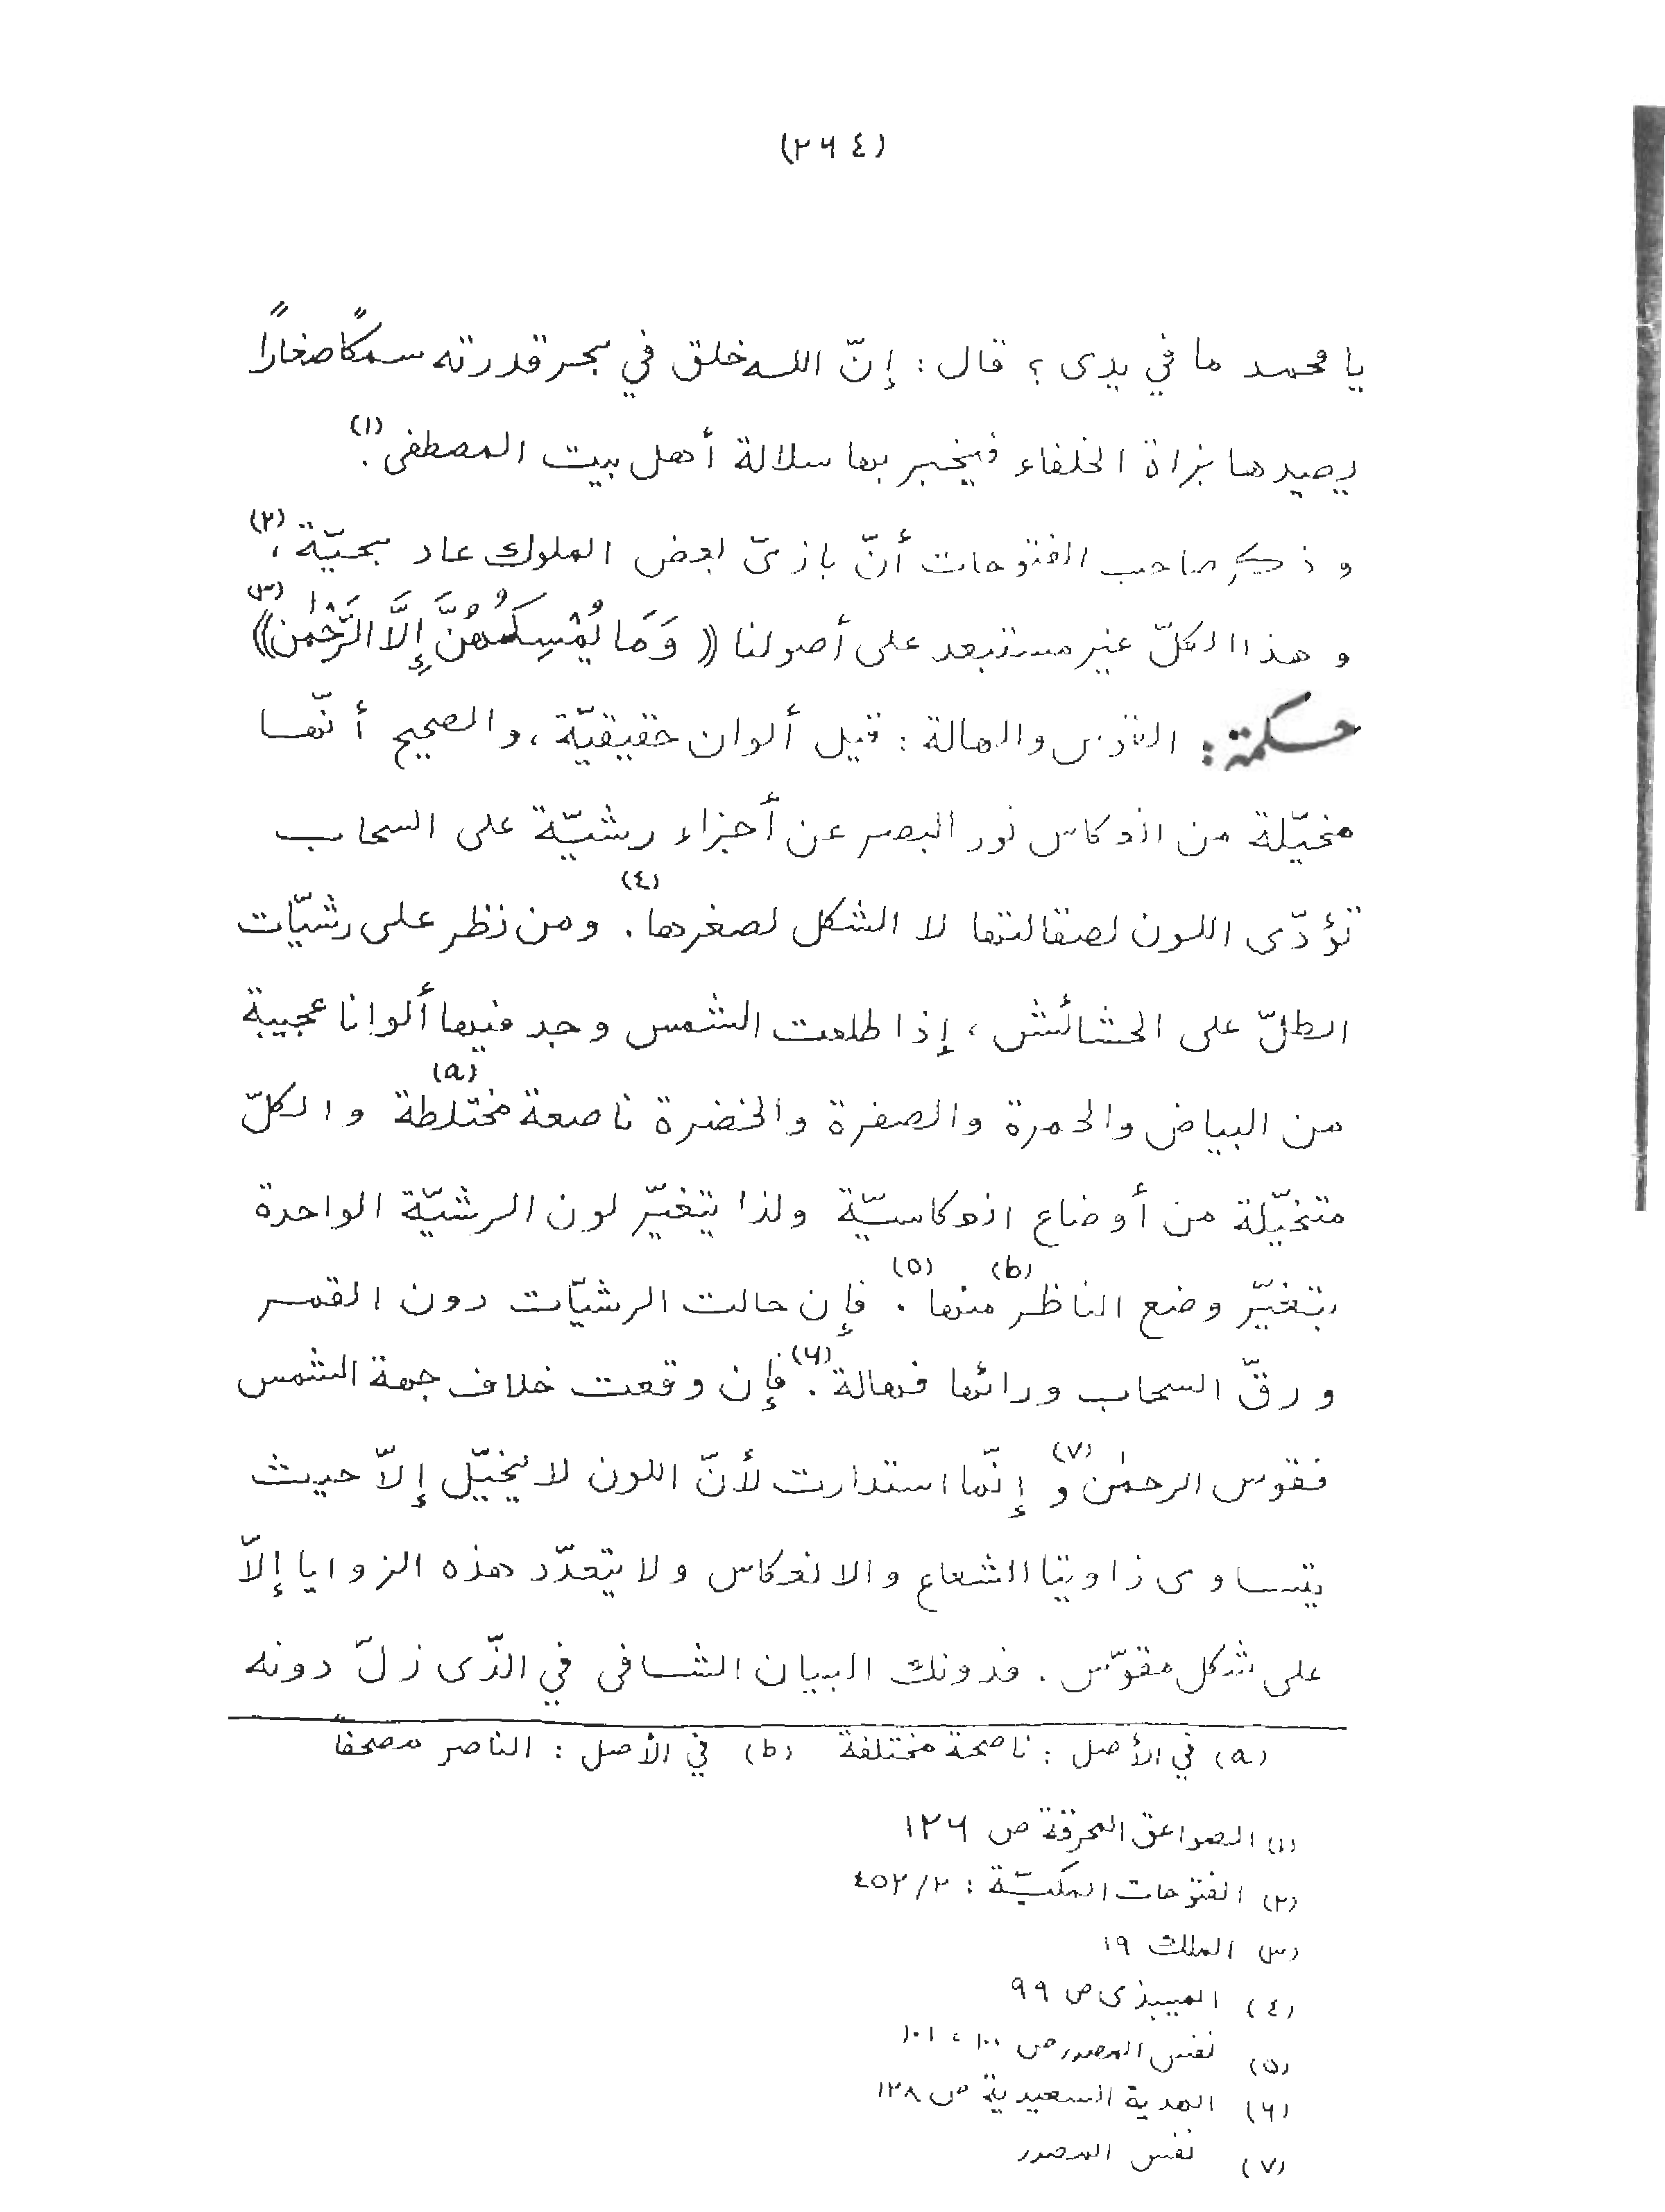 (٢٦٤)
يا محمد ما في يدى ؟ قال : إنّ الله خلق في بحر قدرته سمكًا صغارًا
يصيدها بزاة الخلفاء فيخبر بها سلالة أهل بيت المصطفى (١).
و ذكر صاحب الفتوحات أنّ بازىّ لبعض الملوك عاد بحيّة (٢)،
و هذا الكلّ غير مستبعد على أصولنا ((وَمَا يُمْسِكُهُنَّ إِلَّا الرَّحْمٰن)) (٣)
حكمة : القوس والهالة : قيل ألوان حقيقيّة ، والصحيح أنّها
مخيّلة من انعكاس نور البصر عن أجزاء رشيّة على السحاب
تؤدّى اللون لصقالتها لا الشكل لصغرها (٤). ومن نظر على رشيّات
الطلّ على الحشائش ، إذا طلعت الشمس وجد فيها ألوانا عجيبة
من البياض والحمرة والصفرة والخضرة ناصعة مختلطة (a) والكلّ
متخيّلة من أوضاع انعكاسيّة ولذا يتغيّر لون الرشيّة الواحدة
بتغيّر وضع الناظر (b) منها (٥). فإن حالت الرشيّات دون القمر
ورقّ السحاب ورائها فهالة (٦). فإن وقعت خلاف جهة الشمس
فقوس الرحمٰن (٧) و إنّما استدارت لأنّ اللون لا يخيّل إلاّ حيث
يتساوى زاويتا الشعاع والانعكاس ولا يتعدّد هذه الزوايا إلاّ
على شكل مقوّس . فدونك البيان الشافى في الذّى زلّ دونه
(a) في الأصل : ناصحة مختلفة (b) في الأصل : الناصر مصحفاً
(١) الصواعق المحرقة ص ١٢٦
(٢) الفتوحات المكيّة : ٢/ ٤٥٢
(٣) الملك ١٩
(٤) الميبذى ص ٩٩
(٥) نفس المصدر ص ١٠٠ ، ١٠١
(٦) الهدية السعيدية ص ١٢٨
(٧) نفس المصدر